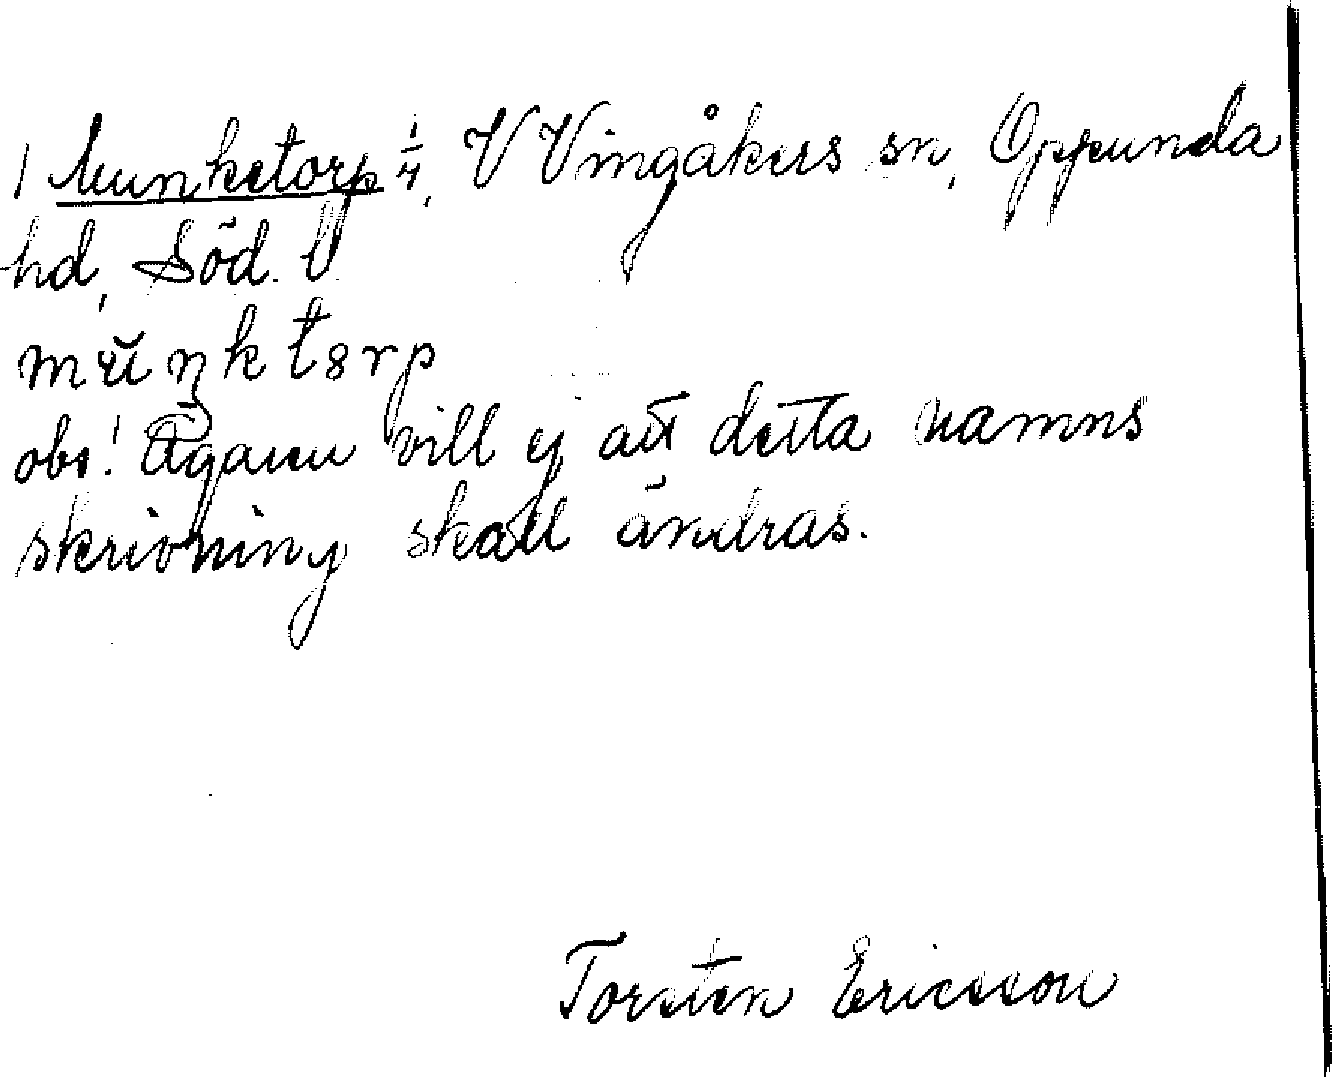 1 Munketorp 1/4, V Vingåkers sn, Oppunda
hd, Söd. l
mŭŋktȣrp
obs! Ägaren vill ej att detta namns
skrivning skall ändras.
Torsten Ericsson